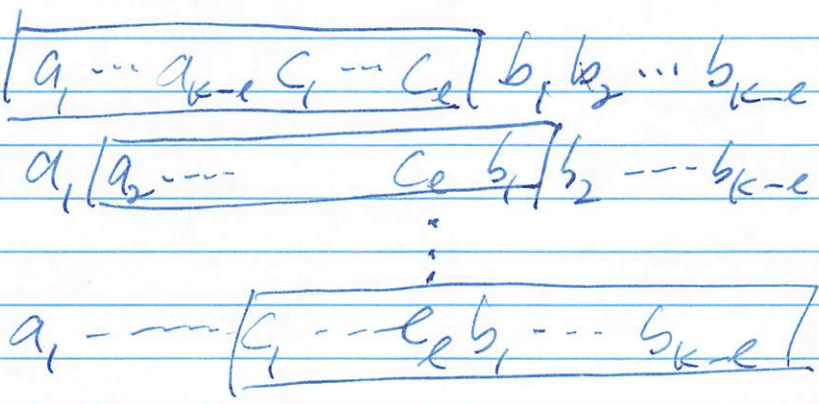 a₁ ... a_{k-e} c₁ ... c_e b₁ b₂ ... b_{k-e}
a₁ a₂ .... c_e b₁ b₂ ---- b_{k-e}
⋮
a₁ ------ c₁ ---- c_e b₁ --- b_{k-e}